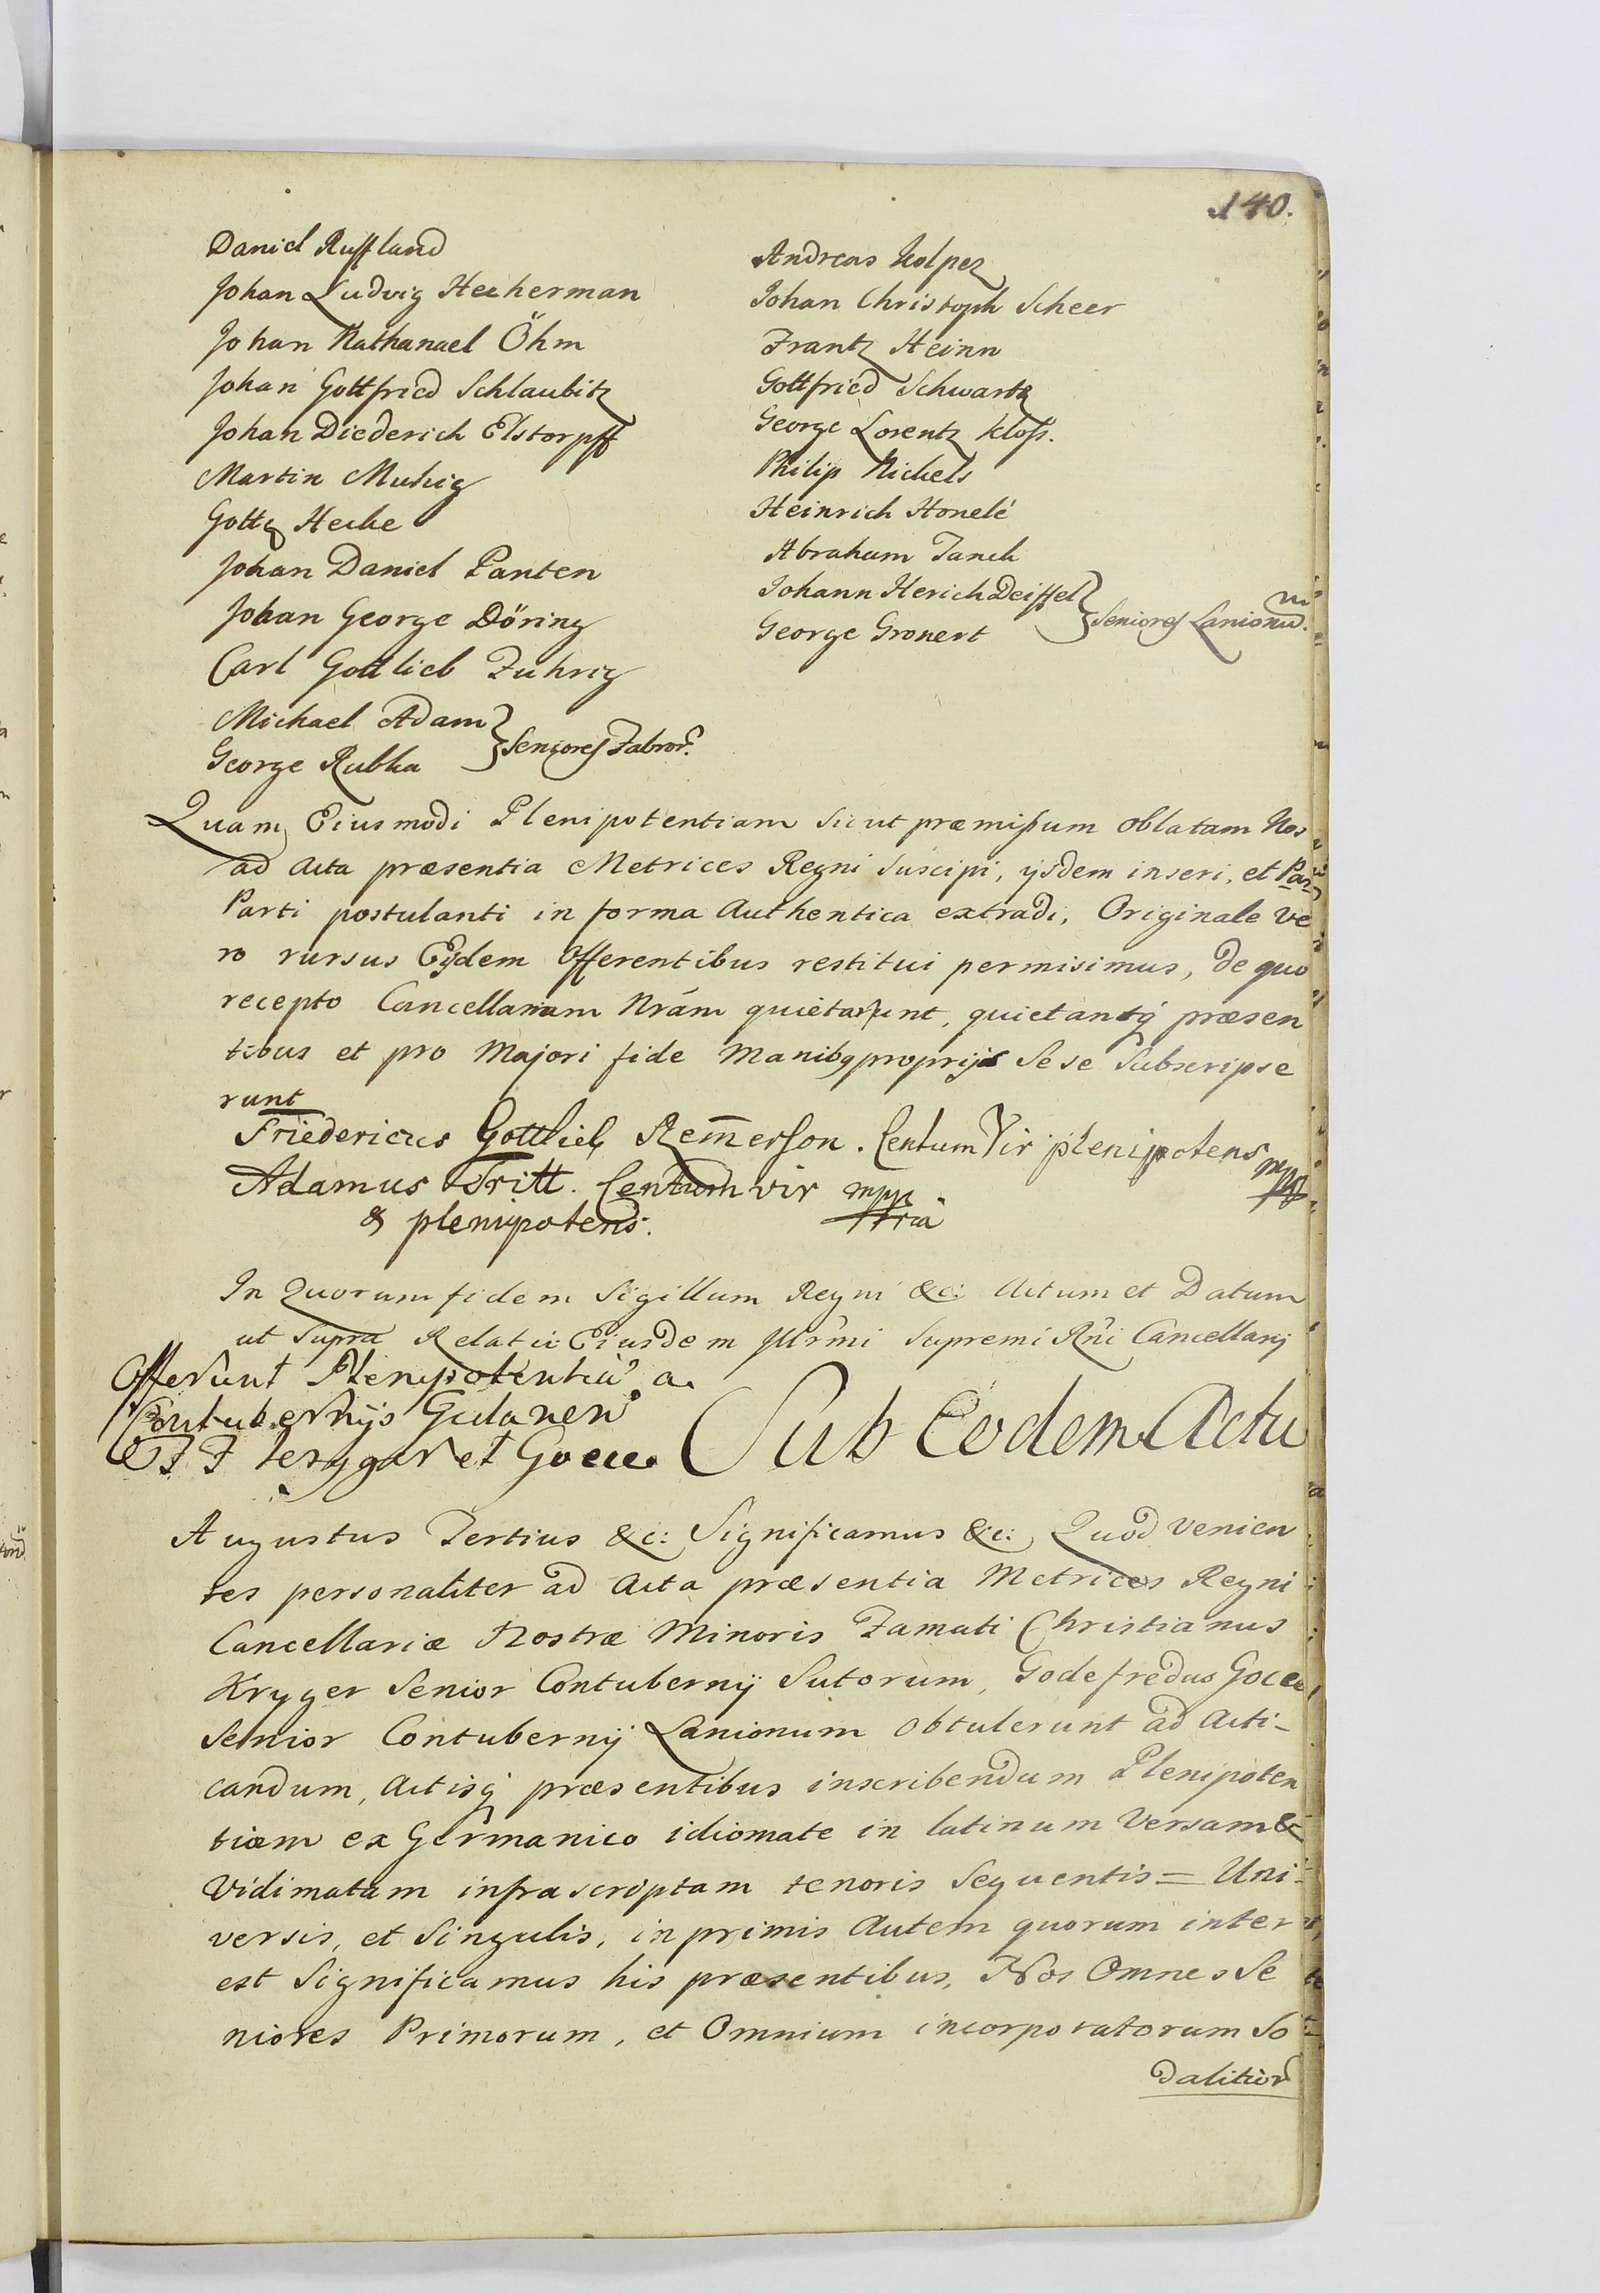 140.
Daniel Ruffland
Johan Ludvig Heckerman
Johan Nathanael Öhm
Johan Gottfried Schlaubitz
Johan Diederich Elstorpff
Martin Muhig
Gottf Hecke
Johan Daniel Panten
Johan George Döring
Carl Gottlieb Fuhrig
Michael Adam
George Rubka
Seniores Fabror:
Andreas Kolpez
Johan Christoph Scheer
Frantz Heinn
Gottfried Schwartz
George Lorentz Kloss.
Philip Nickels
Heinrich Honelé
Abraham Janck
Johann Herich Deiffel
George Gronert
Seniores Lanionu.
Quam Eiusmodi Plenipotentiam sicut præmissum oblatam Nos
ad Acta præsentia Metrices Regni suscipi, ijsdem inseri, et Par
Parti postulanti in forma Authentica extradi, Originale Ve
ro rursus Eisdem Offerentibus restitui permisimus, de quo
recepto Cancellariam Nrám quietarunt, quietantq præsen
tibus et pro Majori fide Manibq proprijs Sese Subscripse
runt
Friedericus Gottlieb Rem̄erson. Centum Vir plenipotens mpp
Adamus Tritt. Centum vir mpp
& plenipotens. ria
In Quorum fidem Sigillum Regni &c: Actum et Datum
ut Supra Relatio Eiusdem Illrmi Supremi Rni Cancellarij
Offerunt Plenipotentia a
Contubernijs Gedanen
FF Kryger et Goece
Sub Eodem Actu
Augustus Tertius &c: Significamus &c: Quod venien
tes personaliter ad Acta præsentia Metrices Regni
Cancellariæ Nostræ Minoris Famati Christianus
Kryger Senior Contubernij Sutorum, Godefredus Goece
Senior Contubernij Lanionum obtulerunt ad Acti-
candum, Actisq præsentibus inscribendum Plenipoten
tiam ex Germanico idiomate in latinum Versam &
Vidimatam infrascriptam tenoris Sequentis = Uni-
versis, et Singulis, inprimis Autem quorum inter
est Significamus his præsentibus, Nos Omnes Se
niores Primorum, et Omnium incorporatorum So
dalitior